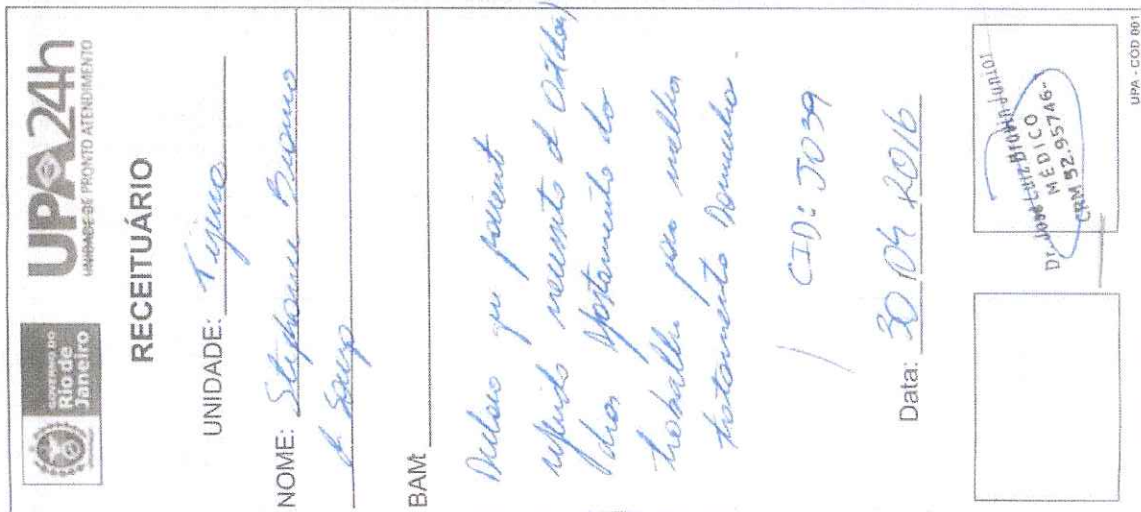 GOVERNO DO
Rio de
Janeiro
UPA24h
UNIDADE DE PRONTO ATENDIMENTO
RECEITUÁRIO
UNIDADE: Tijuca
NOME: Stephanie
d Souza
BAM:
Declaro que paciente
referido necessita d 01 (dois)
dias afastamento do
trabalho para melhor
tratamento Domiciliar.
CID: J039
Data: 30/04/2016
Dr. José Luiz Junior
MÉDICO
CRM 52.95746-
UPA - CÓD 001